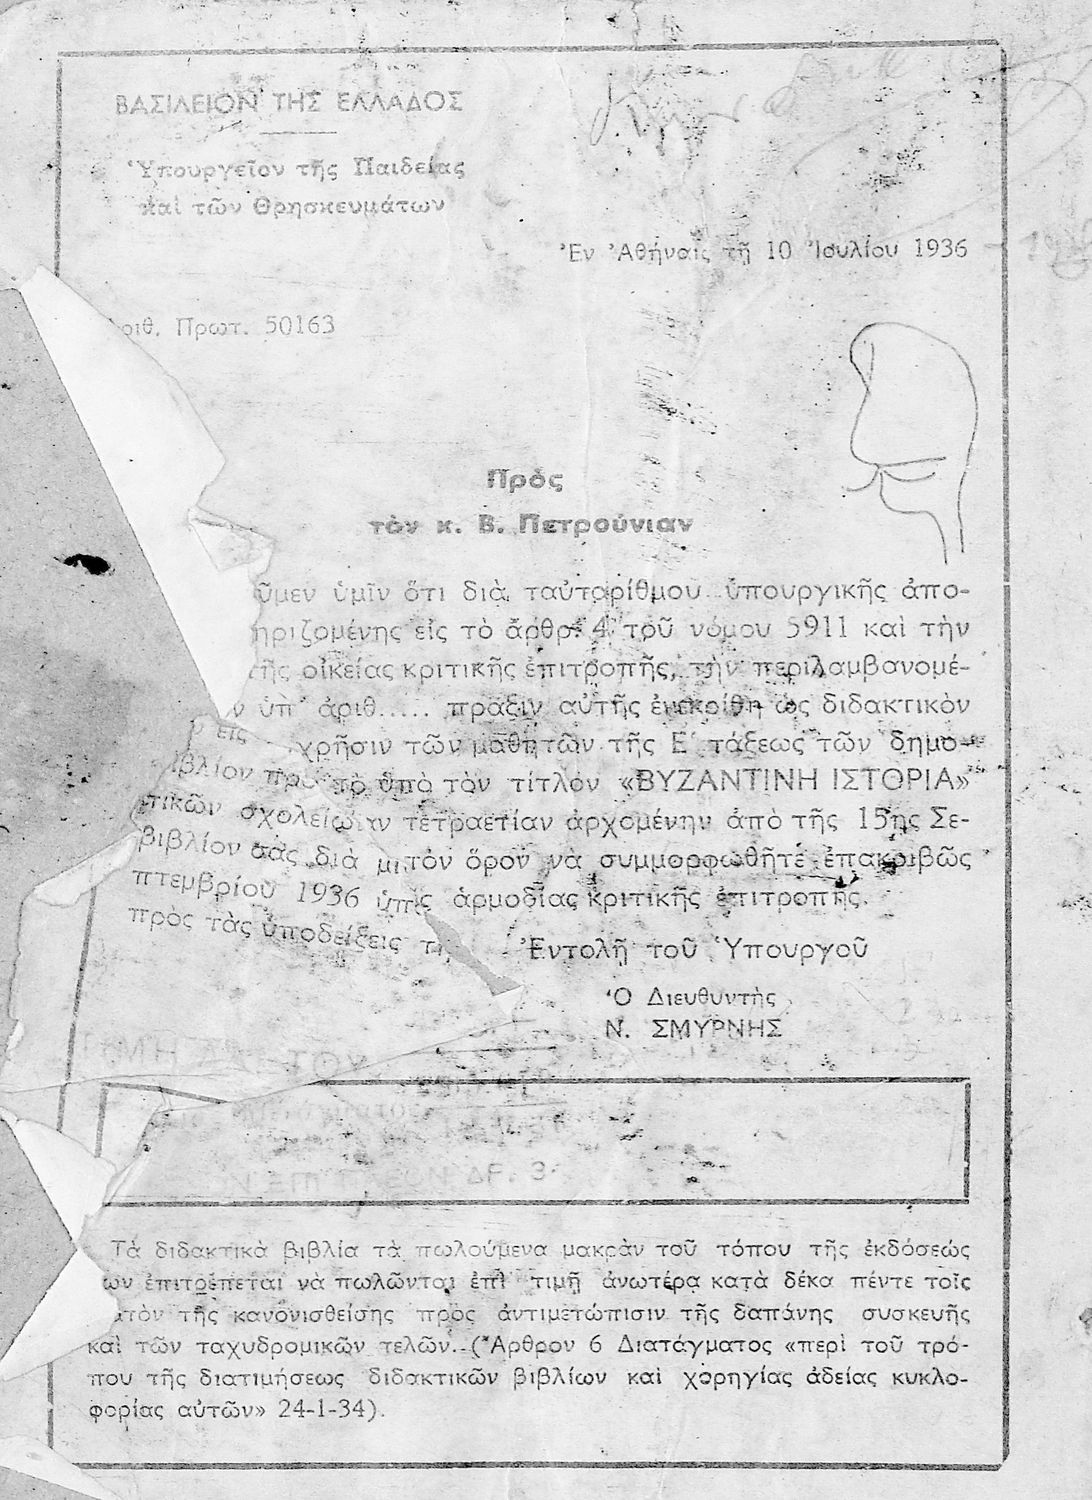 ΒΑΣΙΛΕΙΟΝ ΤΗΣ ΕΛΛΑΔΟΣ
Ὑπουργεῖον τῆς Παιδείας
καὶ τῶν Θρησκευμάτων
Ἐν Ἀθήναις τῇ 10 Ἰουλίου 1936
ριθ. Πρωτ. 50163
Πρὸς
τὸν κ. Β. Πετρούνιαν
οῦμεν ὑμῖν ὅτι διὰ ταὐταρίθμου ὑπουργικῆς ἀπο-
ηριζομένης εἰς τὸ ἄρθρ. 4 τοῦ νόμου 5911 καὶ τὴν
τῆς οἰκείας κριτικῆς ἐπιτροπῆς, τὴν περιλαμβανομέ-
ν ὑπ' ἀριθ..... πρᾶξιν αὐτῆς ἐνεκρίθη ὡς διδακτικὸν
εἰς χρῆσιν τῶν μαθητῶν τῆς Ε΄ τάξεως τῶν δημο-
ιβλίον πρὸ τὸ ὑπὸ τὸν τίτλον «ΒΥΖΑΝΤΙΝΗ ΙΣΤΟΡΙΑ»
τικῶν σχολείων τετραετίαν ἀρχομένην ἀπὸ τῆς 15ης Σε-
βιβλίον σας διὰ μι τὸν ὅρον νὰ συμμορφωθῆτε ἐπακριβῶς
πτεμβρίου 1936 ὑπ ῆς ἁρμοδίας κριτικῆς ἐπιτροπῆς.
πρὸς τὰς ὑποδείξεις τ
Ἐντολῇ τοῦ Ὑπουργοῦ
Ὁ Διευθυντὴς
Ν. ΣΜΥΡΝΗΣ
ΔΡ. 3
Τὰ διδακτικὰ βιβλία τὰ πωλούμενα μακρὰν τοῦ τόπου τῆς ἐκδόσεώς
των ἐπιτρέπεται νὰ πωλῶνται ἐπὶ τιμῇ ἀνωτέρᾳ κατὰ δέκα πέντε τοῖς
ατὸν τῆς κανονισθείσης πρὸς ἀντιμετώπισιν τῆς δαπάνης συσκευῆς
καὶ τῶν ταχυδρομικῶν τελῶν. (Ἄρθρον 6 Διατάγματος «περὶ τοῦ τρό-
που τῆς διατιμήσεως διδακτικῶν βιβλίων καὶ χορηγίας ἀδείας κυκλο-
φορίας αὐτῶν» 24-1-34).